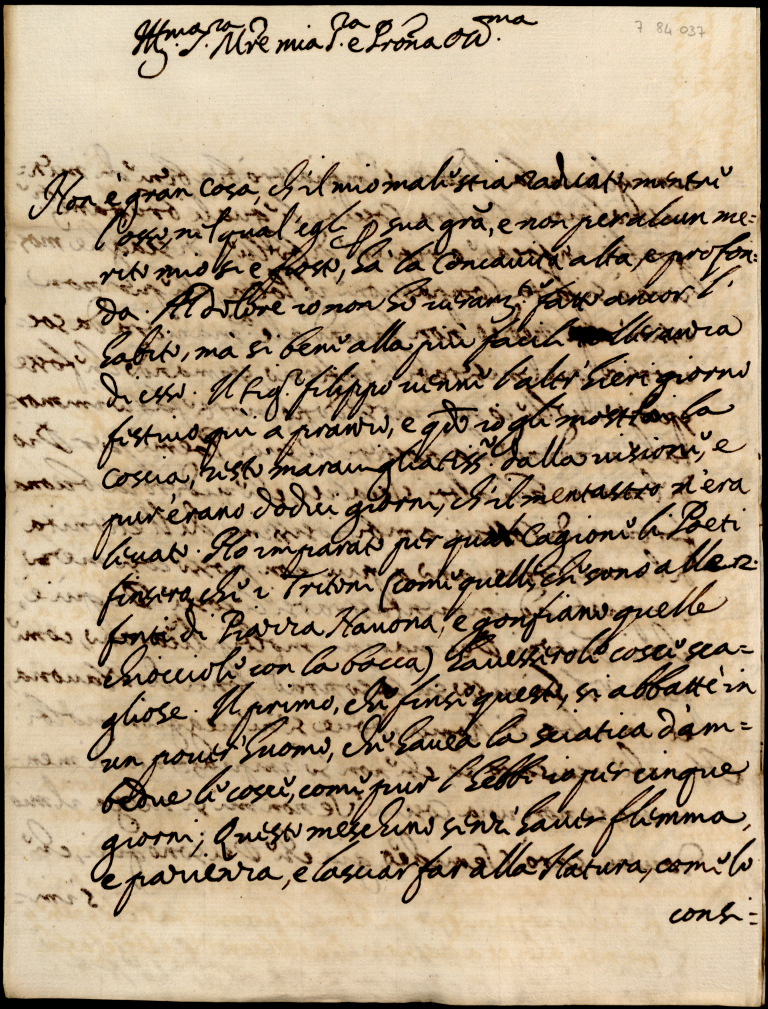 7 84 037
Ill.ma S.ra M.re mia S.ra e Pro'na Oss.ma
Non è gran cosa, ch'il mio male stia radicato, mentre
l'osso nel qual'egli p sua gra, e non per alcun me=
rito mio si è posto, hà la concavità alta, e profon=
da. Al dolore io non hò inanzi fatto ancor l'
habito, mà si bene alla più facile tolleranza
di esso. Il Sig.r Filippo venne l'altr'hieri giorno
festivo quì a pranzo, e qdo io gli mostrai la
coscia, restò maravigliatiss.o dalla visione, e
pur'erano dodici giorni, ch'il mentastro n'era
levato. Hò imparato per qual cagione li Poeti
finsero, che i Tritoni (come quelli, che sono alle
fonti di Piazza Navona, e gonfiano quelle
chiocciole con la bocca) havessero le coscie sca=
gliose. Il primo, che finse questo, si abbattè in
un pover'huomo, che havea la sciatica d'am=
bedue le coscie, come pur l'hebbi io per cinque
giorni; Questo meschino senz'haver flemma,
e pazienza, e lasciar far alla Natura, come lo
consi=